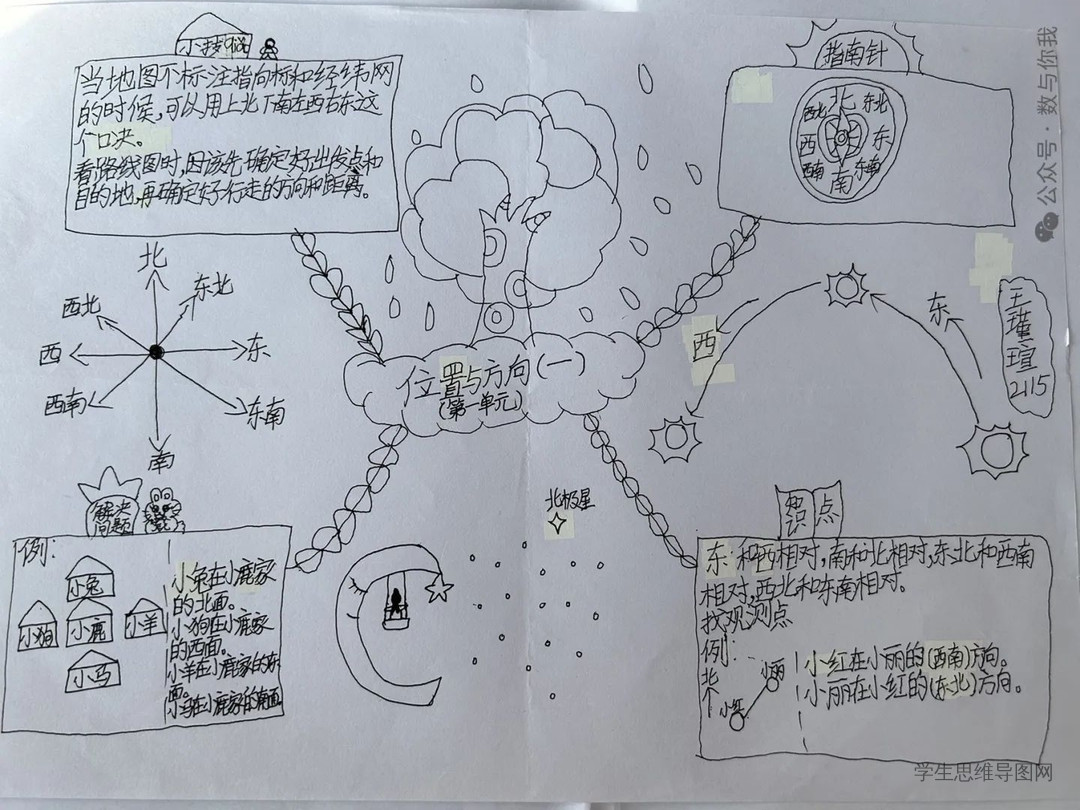 小技巧
当地图不标注指向标和经纬网
的时候,可以用上北下南左西右东这
个口决。
看路线图时,因该先确定好出发点和
目的地,再确定好行走的方向和距离。
指南针
北
西北
东北
西
东
西南
东南
南
公众号·数与你我
北
西北
东北
西
东
西南
东南
南
位置与方向(一)
(第一单元)
西
东
王瑾瑄
2115
解决
问题
例:
小兔
小狗
小鹿
小羊
小马
小兔在小鹿家
的北面。
小狗在小鹿家
的西面。
小羊在小鹿家的东
面。
小马在小鹿家的南面
北极星
知识点
东:和西相对,南和北相对,东北和西南
相对,西北和东南相对。
找观测点
例:
北
小丽
小红
小红在小丽的(西南)方向。
小丽在小红的(东北)方向。
学生思维导图网